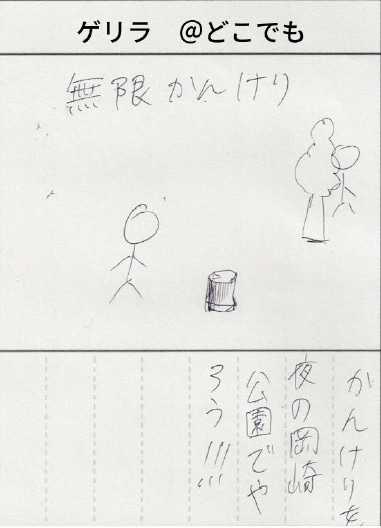 ゲリラ @どこでも
無限かんけり
かんけりを
夜の岡崎
公園でや
ろう!!!